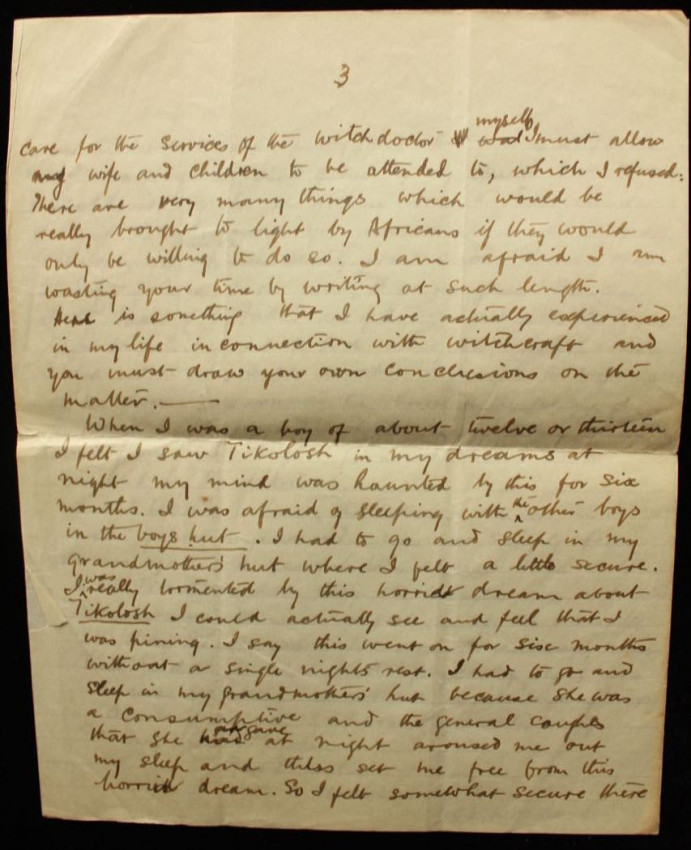 3
care for the services of the witchdoctor myself I must allow
my wife and children to be attended to, which I refused.
There are very many things which would be
really brought to light by Africans if they would
only be willing to do so. I am afraid I am
wasting your time by writing at such length.
Here is something that I have actually experienced
in my life in connection with witchcraft and
you must draw your own conclusions on the
matter. —
When I was a boy of about twelve or thirteen
I felt I saw Tikolosh in my dreams at
night my mind was haunted by this for six
months. I was afraid of sleeping with the other boys
in the boys hut. I had to go and sleep in my
grandmothers' hut where I felt a little secure.
I was really tormented by this horrid dream about
Tikolosh I could actually see and feel that I
was pining. I say this went on for six months
without a single nights rest. I had to go and
sleep in my grandmothers' hut because she was
a consumptive and the general coughs
that she gave at night aroused me out
my sleep and thus set me free from this
horrid dream. So I felt somewhat secure there